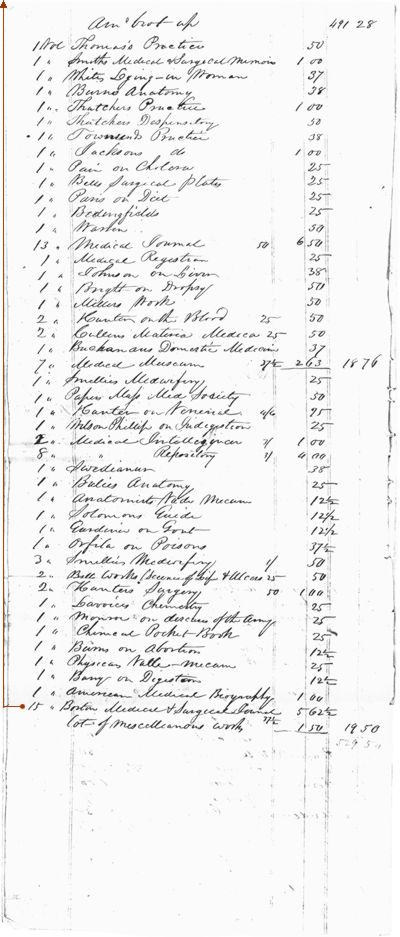 Am't brot up 491 28
1 Vol Thomas's Practice 50
1 " Smiths Medical & Surgical Memoirs 1 00
1 " Whites Lying-in Woman 37
1 " Burns Anatomy 38
1 " Thatchers Practice 1 00
1 " Thatchers Dispensitory 50
1 " Townsends Practice 38
1 " Jacksons do 1 00
1 " Pair on Cholera 25
1 " Bells Surgical Plates 25
1 " Paris on Diet 25
1 " Bedingfields 25
1 " Warren 50
13 " Medical Journal 50 6 50
1 " Medical Registron 25
1 " Johnson on Liver 38
1 " Bright on Dropsy 50
1 " Millers Work 50
2 " Hunter on the Blood 25 50
2 " Cullens Materia Medica 25 50
1 " Buchanans Domestic Medicine 37
7 " Medical Museum 37½ 2 63 18 76
1 " Smellies Medwifery 25
1 " Papers Mass Med Society 50
1 " Hunter on Venereal 95
1 " Wilson Phillip on Indigestion 25
2 " Medical Intelligencer 3/ 1 00
8 " " Repository 3/ 4 00
1 " Swedianur 38
1 " Bailies Anatomy 25
1 " Anatomists Vade Mecum 12½
1 " Solomons Guide 12½
1 " Gardiner on Gout 12½
1 " Orfila on Poisons 37½
3 " Smellies Medwifery 1/ 50
2 " Bell Works & Ulcers 25 50
2 " Hunters Surgery 50 1 00
1 " Chemistry 25
1 " Monroe on diseases of the Army 25
1 " Chimical Pocket Book 25
1 " Burns on Abortion 12½
1 " Physicians Vade-mecum 25
1 " Barry on Digestion 12½
1 " American Medical Biography 1 00
15 " Boston Medical & Surgical Journal 37½ 5 62½
lot of Miscellianous works 1 50 19 50
529 54